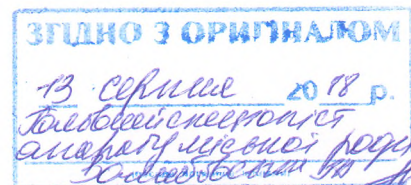 ЗГІДНО З ОРИГІНАЛОМ
13 серпня 2018 р.
Головний спеціаліст
апарату міської ради